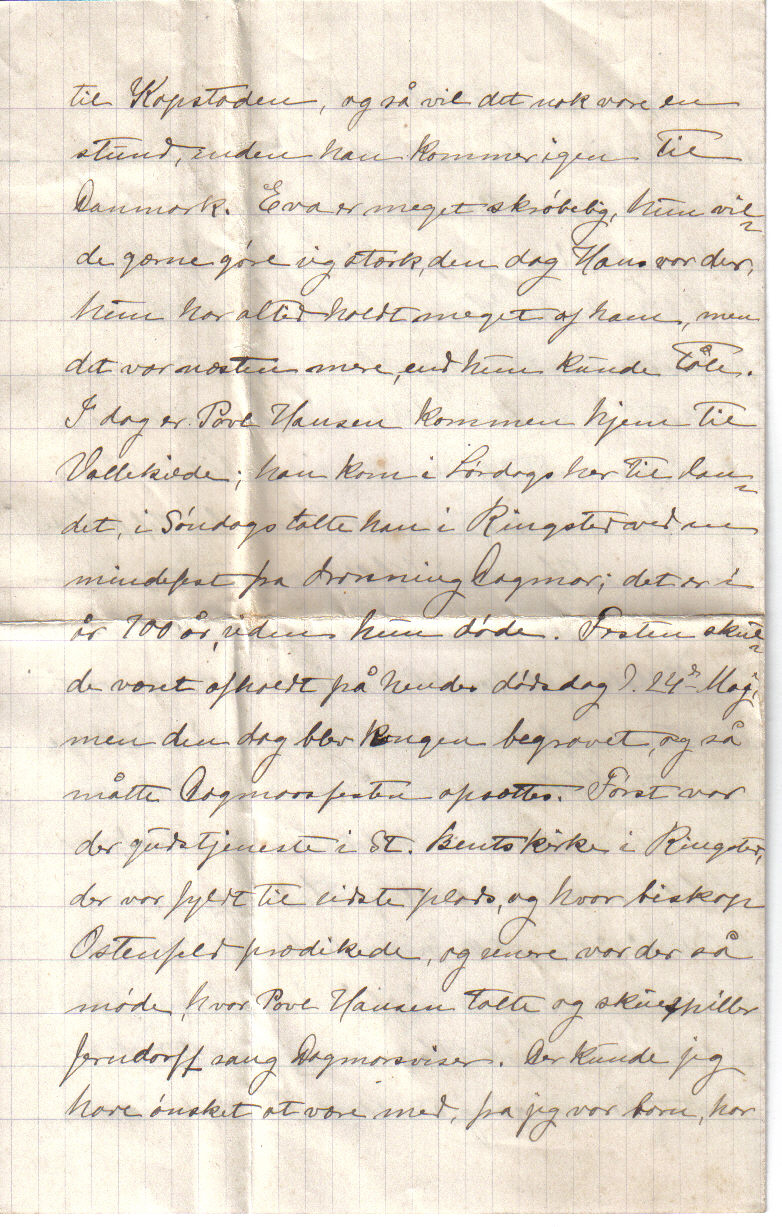 til Kapstaden, og så vil det nok vare en
stund, inden han kommer igen til
Danmark. Eva er meget skrøbelig, hun vil=
de gærne göre sig stærk, den dag Hans var der,
hun har altid holdt meget af ham, men
det var næsten mere, end hun kunde tåle.
I dag er Povl Hansen kommen hjem til
Vallekilde; han kom i Lørdags her til lan=
det, i Søndags talte han i Ringsted ved en
mindefest på dronning Dagmar; det er i
år 700 år, siden hun døde. Festen skul=
de været afholdt på hendes dødsdag d. 24de Maj,
men den dag blev kongen begravet, og så
måtte Dagmarsfesten opsættes. Først var
der gudstjeneste i St. Bents kirke i Ringsted,
der var fyldt til sidste plads, og hvor biskop
Ostenfeld prædikede, og senere var der så
møde, hvor Povl Hansen talte og skuespiller
Jerndorff sang Dagmarsviser. Der kunde jeg
have ønsket at være med, fra jeg var barn, har